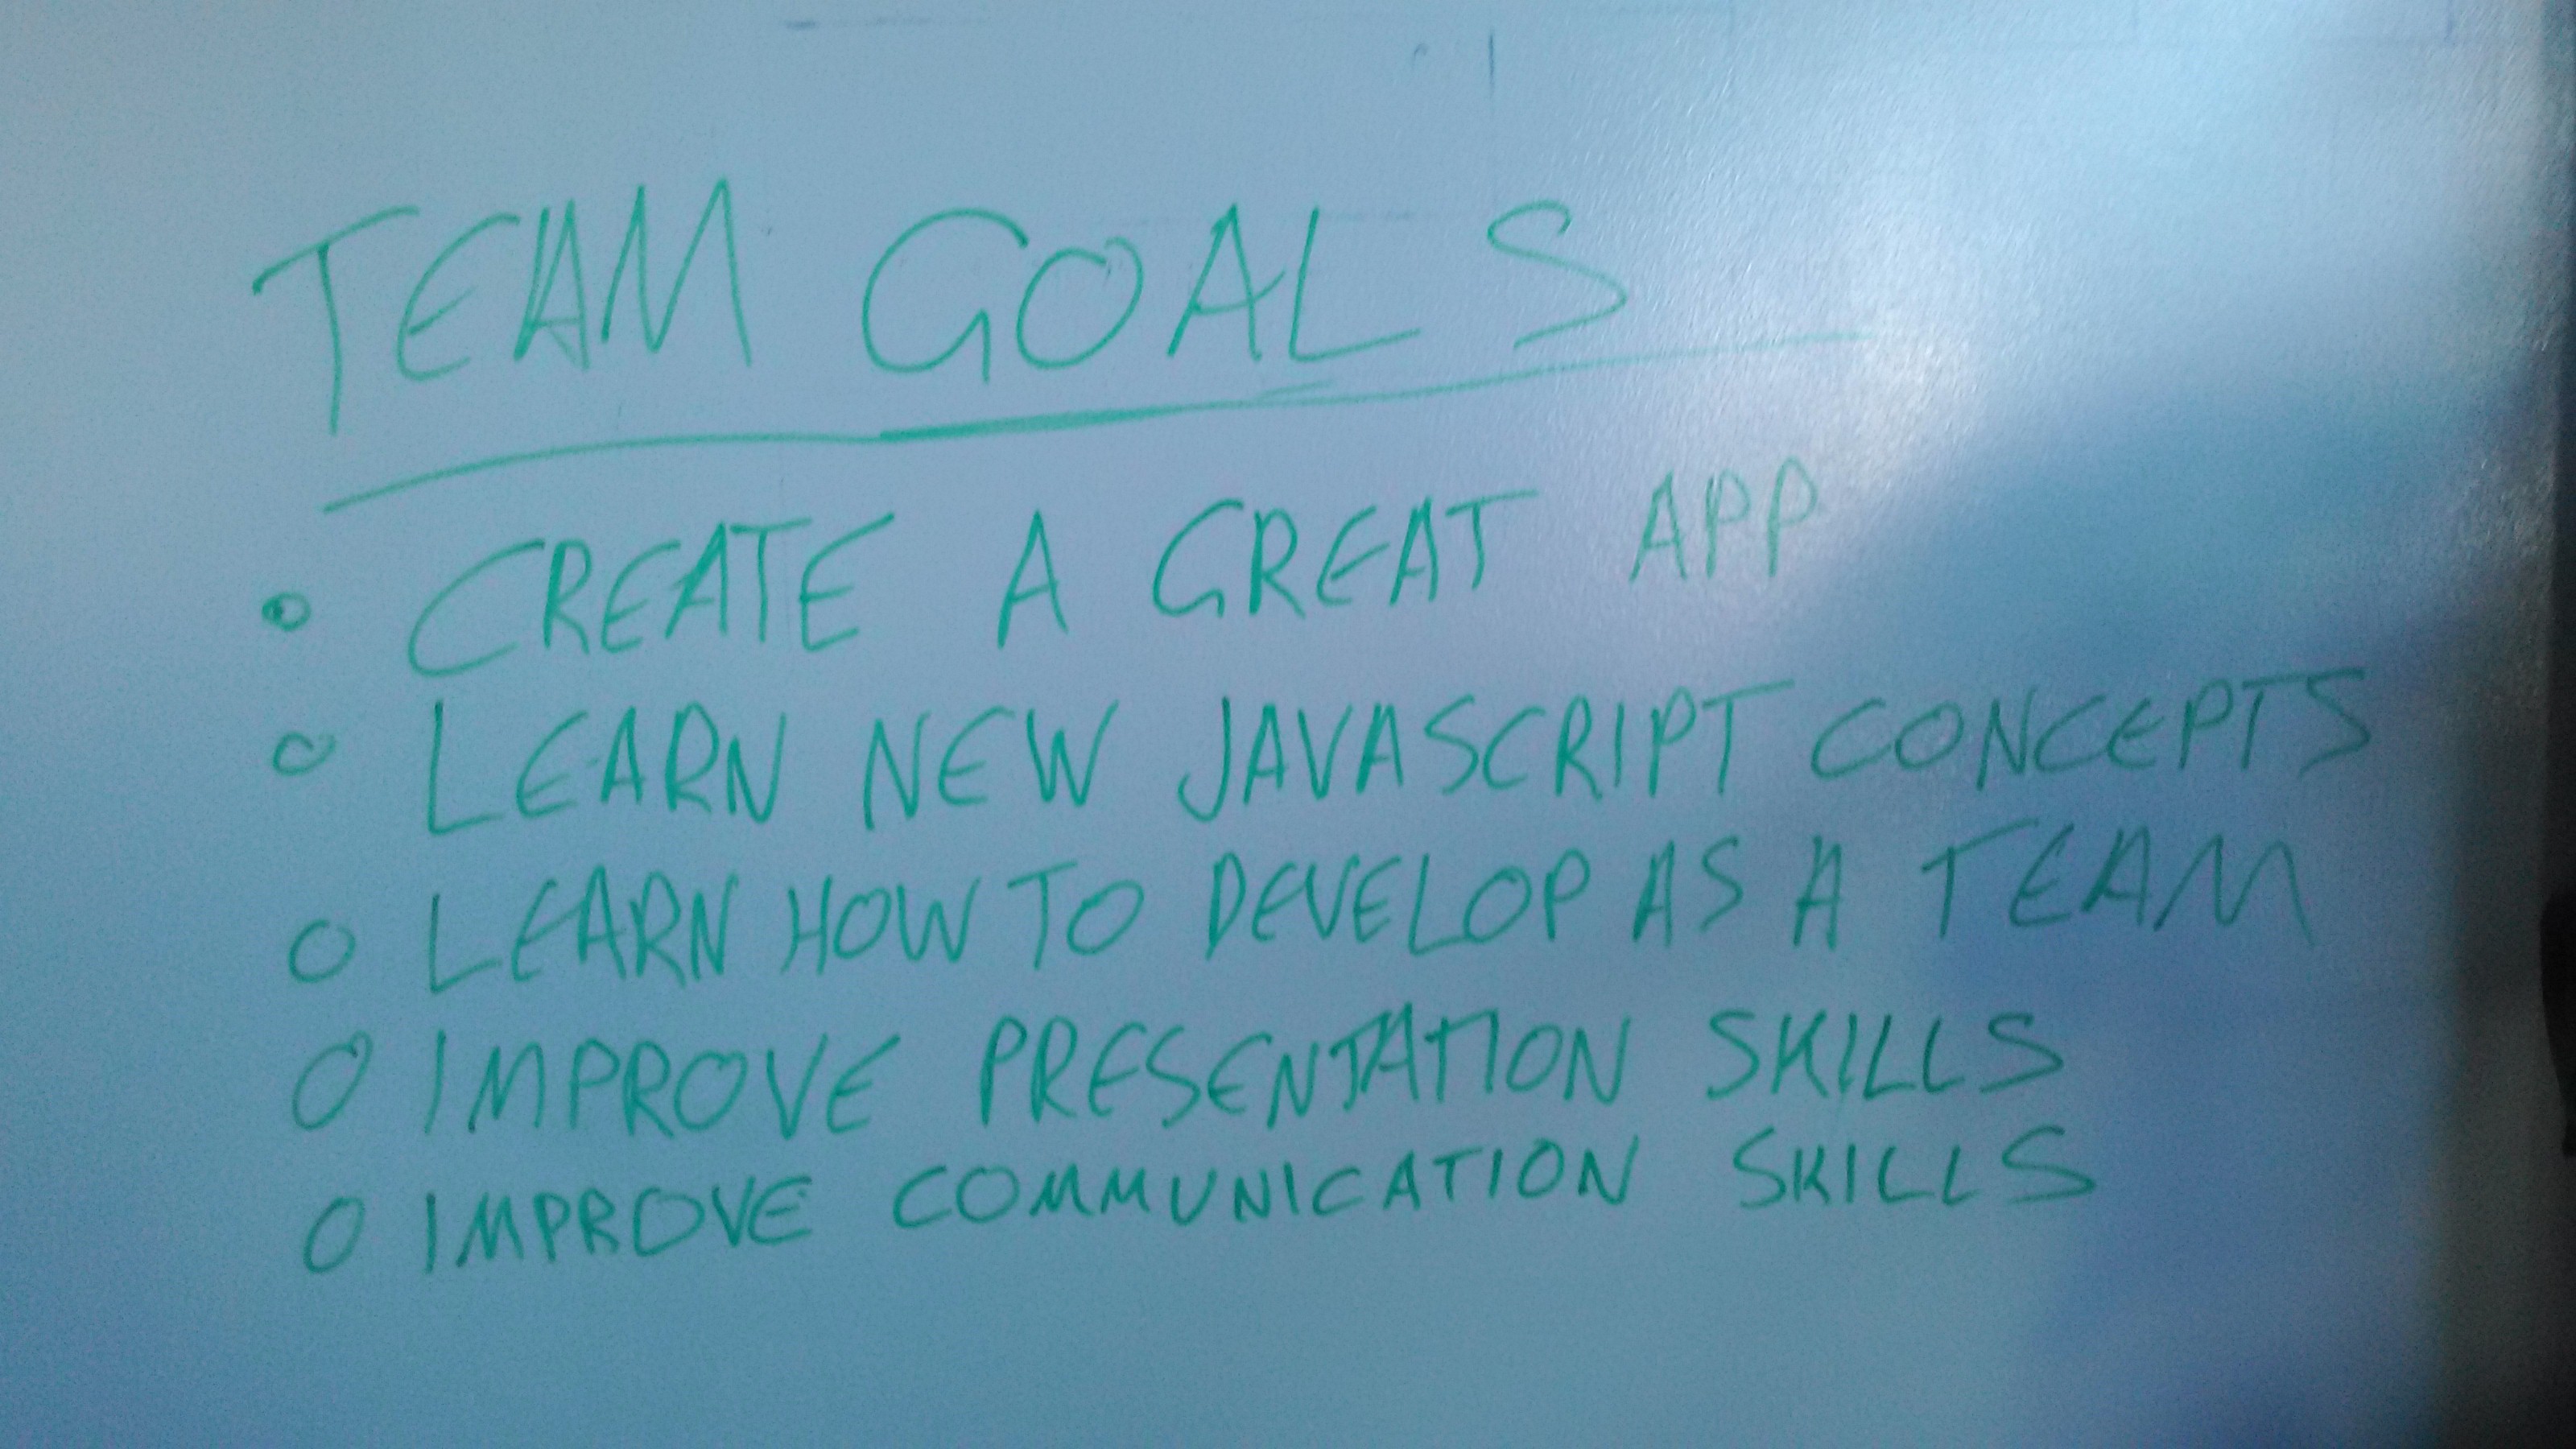 TEAM GOALS
• CREATE A GREAT APP
○ LEARN NEW JAVASCRIPT CONCEPTS
○ LEARN HOW TO DEVELOP AS A TEAM
○ IMPROVE PRESENTATION SKILLS
○ IMPROVE COMMUNICATION SKILLS